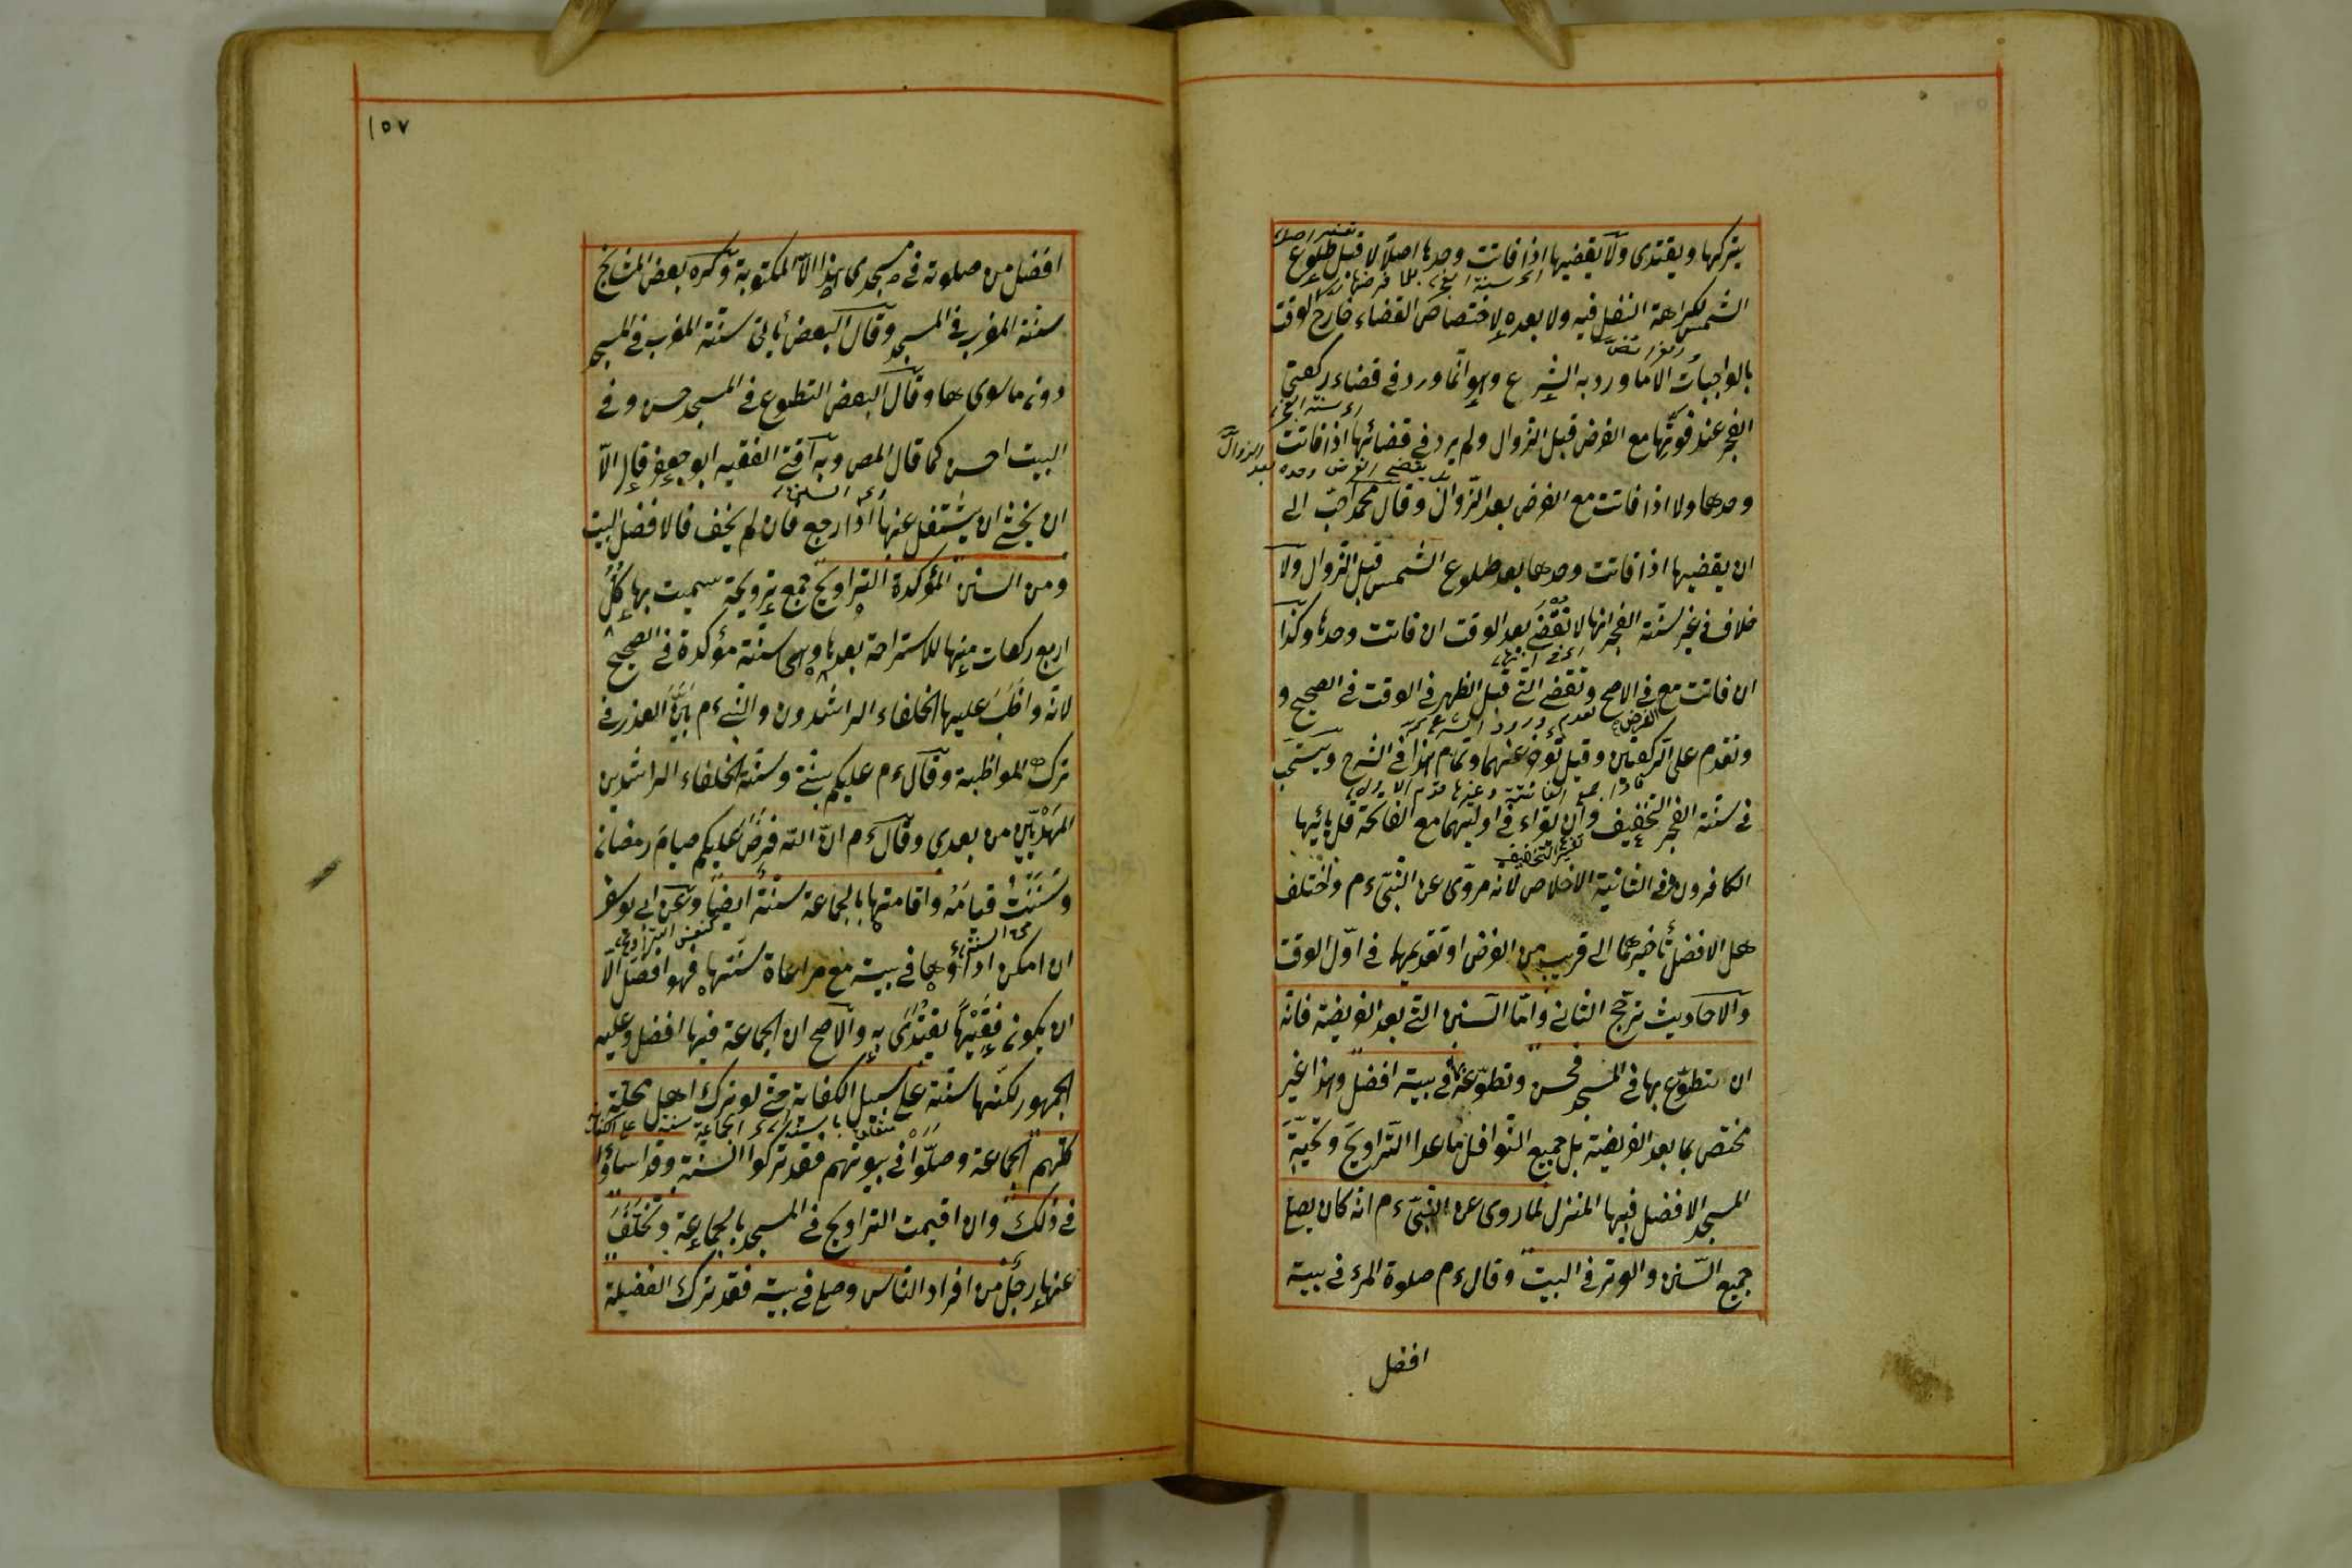 يتركها ويقتدى ولا يقضيها اذا فاتت وحدها اصلًا لا قبل طلوع
الشمس لكراهة النفل فيه ولا بعده لاختصاص القضاء خارج الوقت
بالواجبات الا ما ورد به الشرع وهو انما ورد فى قضاء ركعتى
الفجر عند فوتها مع الفرض قبل الزوال ولم يرد فى قضائها اذا فاتت
وحدها ولا اذا فاتت مع الفرض بعد الزوال وقال محمد احبّ الى
ان يقضيها اذا فاتت وحدها بعد طلوع الشمس قبل الزوال ولا
خلاف فى غير سنة الفجر انها لا تقضى بعد الوقت ان فاتت وحدها وكذا
ان فاتت مع فى الاصح وتقضى التى قبل الظهر فى الوقت فى الصحيح و
وتقدم على الركعتين وقيل تؤخر عنهما وتمام هذا فى الشرح ويستحب
فى سنة الفجر التخفيف وان يقراء فى اوليهما مع الفاتحة قل يا ايها
الكافرون وفى الثانية الاخلاص لانه مروى عن النبى ءم واختلف
هل الافضل تأخيرهما الى قريب من الفرض او تقديمها فى اوّل الوقت
والاحاديث ترجّح الثانى وامّا السنن التى بعد الفريضة فانّه
ان تطوّع بها فى المسجد فحسن وتطوّعه بها فى بيته افضل وهذا غير
مختصّ بما بعد الفريضة بل جميع النوافل ما عدا التراويح وتحيّة
المسجد الافضل فيها المنزل لما روى عن النبىّ ءم انه كان يصلى
جميع السّنن والوتر فى البيت وقال ءم صلوة المرء فى بيته
افضل
١٥٧
افضل من صلوته فى مسجدى هذا الا المكتوبة وكره بعض المشايخ
سنة المغرب فى المسجد وقال البعض يأتى سنة المغرب فى المسجد
دون ما سوى ها وقال البعض التطوع فى المسجد حسن وفى
البيت احسن كما قال المص وبه افتى الفقيه ابو جعفر قال الّا
ان يخشى ان يشتغل عنها اذا رجع فان لم يخف فالافضل البيت
ومن السنن المؤكدة التراويح جمع ترويحة سميت بها كلّ
اربع ركعات منها للاستراحة بعدها وهى سنة مؤكدة فى الصحيح
لانه واظب عليها الخلفاء الراشدون والنبى ءم بيّن العذر فى
ترك المواظبة وقال ءم عليكم بسنتى وسنة الخلفاء الراشدين
المهديّين من بعدى وقال ءم ان الله فرض عليكم صيام رمضان
وسننت قيامه واقامتها بالجماعة سنة ايضا وعن ابى يوسف
ان امكن اداؤها فى بيته مع مراعاة سنتها فهو افضل الّا
ان يكون فقيهًا يقتدى به والاصح ان الجماعة فيها افضل وعليه
الجمهور لكنها سنة على سبيل الكفاية حتى لو ترك اهل محلة
كلّهم الجماعة وصلّوا فى بيوتهم فقد تركوا السنة وقد اساؤا
فى ذلك وان اقيمت التراويح فى المسجد بالجماعة وتخلّف
عنها رجل من افراد الناس وصلى فى بيته فقد ترك الفضيلة